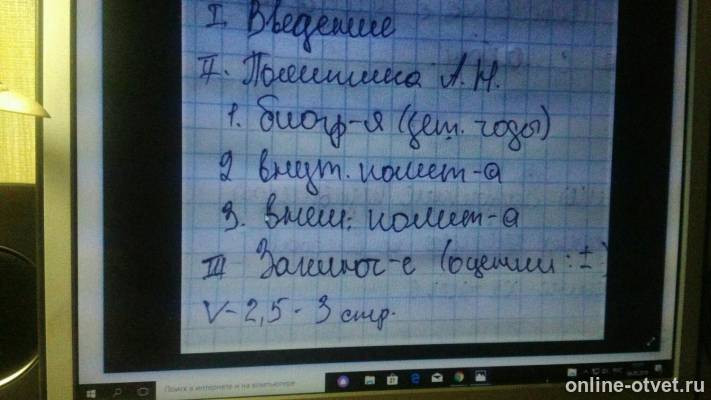 I Введение
II. Политика А.Н.
1. биогр-я (дет. годы)
2 внут. полит-а
3. внеш. полит-а
III Заключ-е (оценки: ±)
V - 2,5 - 3 стр.
Поиск в интернете и на компьютере
online-otvet.ru